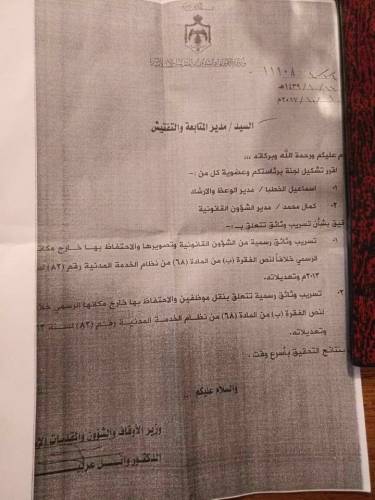 ١١١٠٨
١٤٣٩هـ
٢٠١٧م
السيد / مدير المتابعة والتفتيش
م عليكم ورحمة الله وبركاته ،،،
اقرر تشكيل لجنة برئاستكم وعضوية كل من :-
١- اسماعيل الخطبا / مدير الوعظ والارشاد
٢- كمال محمد / مدير الشؤون القانونية
قيق بشأن تسريب وثائق تتعلق بـ :-
تسريب وثائق رسمية من الشؤون القانونية وتصويرها والاحتفاظ بها خارج مكانها
الرسمي خلافاً لنص الفقرة (ب) من المادة (٦٨) من نظام الخدمة المدنية رقم (٨٢)
٢٠١٣م وتعديلاته.
تسريب وثائق رسمية تتعلق بنقل موظفين والاحتفاظ بها خارج مكانها الرسمي خلاف
لنص الفقرة (ب) من المادة (٦٨) من نظام الخدمة المدنية رقم (٨٢) لسنة
وتعديلاته.
بنتائج التحقيق بأسرع وقت .
والسلام عليكم
وزير الأوقاف والشؤون والمقدسات
الدكتور وائل عربيـ